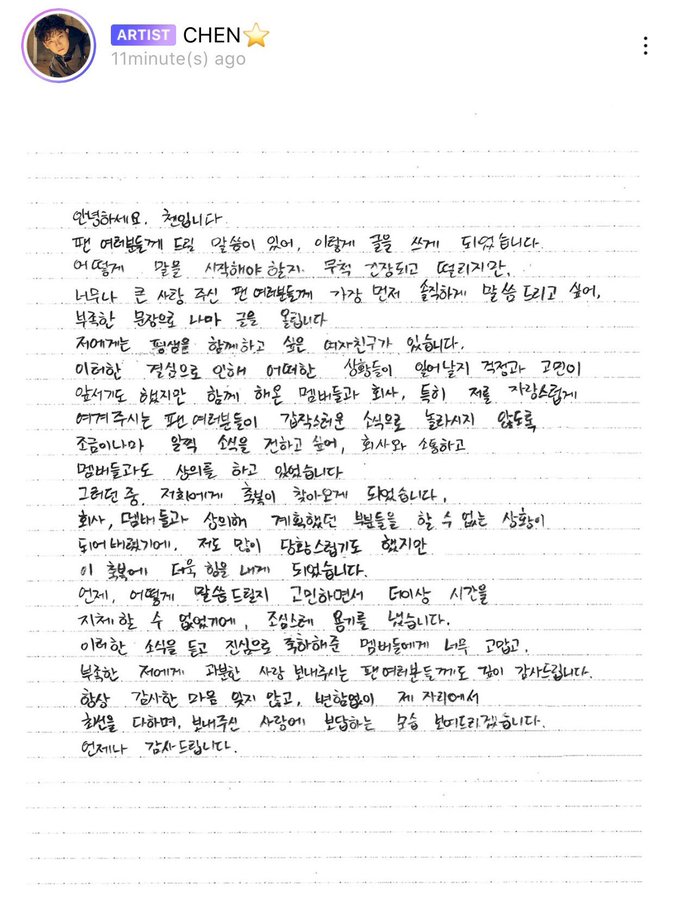 ARTIST CHEN⭐
11minute(s) ago
안녕하세요. 첸입니다.
팬 여러분들께 드릴 말씀이 있어, 이렇게 글을 쓰게 되었습니다.
어떻게 말을 시작해야 할지 무척 긴장되고 떨리지만,
너무나 큰 사랑 주신 팬 여러분들께 가장 먼저 솔직하게 말씀드리고 싶어,
부족한 문장으로 나마 글을 올립니다
저에게는 평생을 함께하고 싶은 여자친구가 있습니다.
이러한 결심으로 인해 어떠한 상황들이 일어날지 걱정과 고민이
앞서기도 했지만 함께 해온 멤버들과 회사, 특히 저를 자랑스럽게
여겨주시는 팬 여러분들이 갑작스러운 소식으로 놀라시지 않도록
조금이나마 일찍 소식을 전하고 싶어, 회사와 소통하고
멤버들과도 상의를 하고 있었습니다
그러던 중, 저희에게 축복이 찾아오게 되었습니다.
회사, 멤버들과 상의해 계획했던 부분들을 할 수 없는 상황이
되어버렸기에, 저도 많이 당황스럽기도 했지만
이 축복에 더욱 힘을 내게 되었습니다.
언제, 어떻게 말씀드릴지 고민하면서 더이상 시간을
지체할 수 없었기에, 조심스레 용기를 냈습니다.
이러한 소식을 듣고 진심으로 축하해준 멤버들에게 너무 고맙고,
부족한 저에게 과분한 사랑 보내주시는 팬 여러분들께도 깊이 감사드립니다.
항상 감사한 마음 잊지 않고, 변함없이 제 자리에서
최선을 다하며, 보내주신 사랑에 보답하는 모습 보여드리겠습니다.
언제나 감사드립니다.